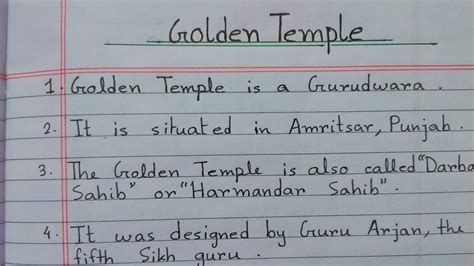 Golden Temple
1. Golden Temple is a Gurudwara.
2. It is situated in Amritsar, Punjab.
3. The Golden Temple is also called "Darba
Sahib" or "Harmandar Sahib".
4. It was designed by Guru Arjan, the
fifth Sikh guru.